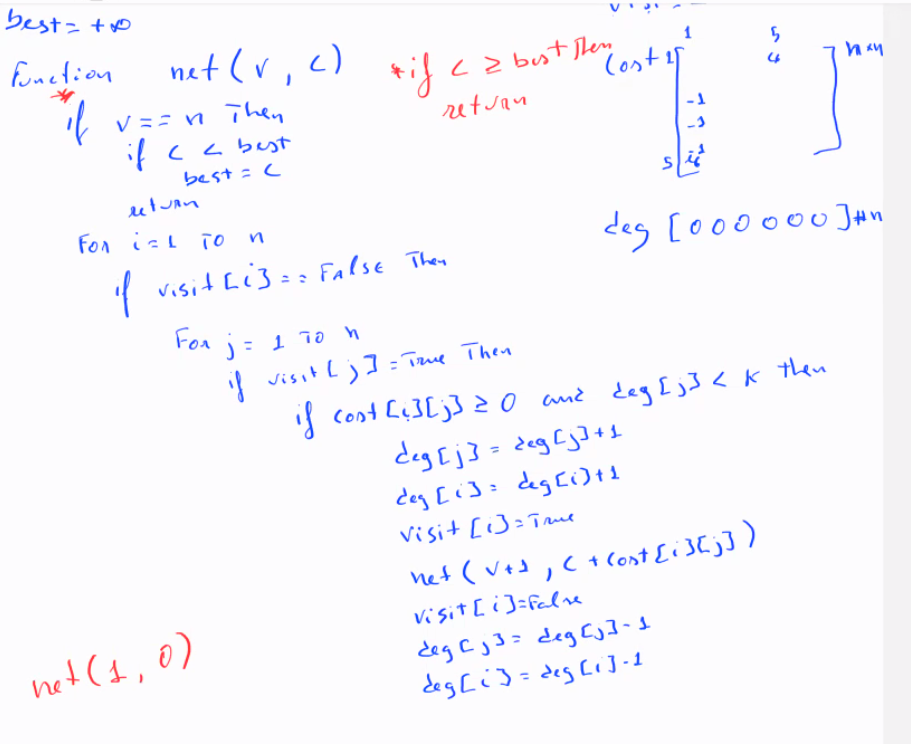 best = +∞
Function net(v, c)
* if c ≥ best then
return
*
if v == n Then
if c < best
best = c
return
For i = 1 To n
if visit[i] == False Then
For j = 1 To n
if visit[j] = True Then
if cost[i][j] ≥ 0 and deg[j] < k then
deg[j] = deg[j]+1
deg[i] = deg[i]+1
visit[i] = True
net(v+1, c + cost[i][j])
visit[i] = False
deg[j] = deg[j]-1
deg[i] = deg[i]-1
net(1, 0)
1 5
Cost 1 4 n×n
-1
-1
5
deg [000000]#n